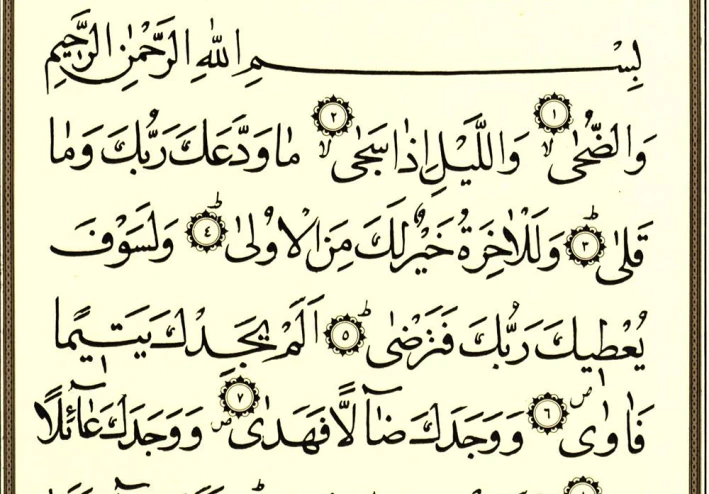 بِسْمِ اللهِ الرَّحْمٰنِ الرَّحِيمِ
وَالضُّحٰىۙ ﴿١﴾ وَالَّيْلِ اِذَا سَجٰىۙ ﴿٢﴾ مَا وَدَّعَكَ رَبُّكَ وَمَا
قَلٰىۜ ﴿٣﴾ وَلَلْاٰخِرَةُ خَيْرٌ لَكَ مِنَ الْاُو۫لٰىۜ ﴿٤﴾ وَلَسَوْفَ
يُعْطٖيكَ رَبُّكَ فَتَرْضٰىۜ ﴿٥﴾ اَلَمْ يَجِدْكَ يَتٖيمًا
فَاٰوٰىۖ ﴿٦﴾ وَوَجَدَكَ ضَٓالًّا فَهَدٰىۖ ﴿٧﴾ وَوَجَدَكَ عَٓائِلًا